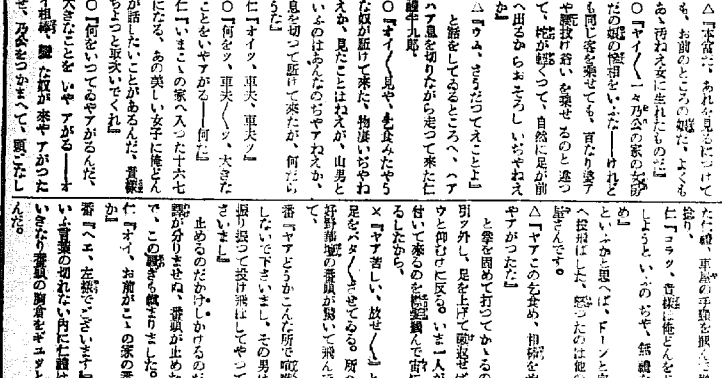 △『本當だ、あれを見るにつけて
も、お前のところの娘だ、よくも
あゝ汚ねえ女に生れたものだ』
○『ヤイ／＼一々乃公の家の女房
だの娘の怪相をいふな――けれど
も同じ客を乗せても、百なり婆ア
や腰抜け爺いを乗せるのと違つ
て、梶が輕くつて、自然に足が前
へ出るからおそろしいぢやねえ
か』
△『ウム、さうだつてえことよ』
と話をしてゐるところへ、ハア
ハア息を切りながら走つて來た仁
禮半九郎、
○『オイ／＼見や、乞食みたやう
な奴が駈けて來た、物凄いぢやね
えか、見たことはねえが、山男と
いふのはあんなのぢやアねえか、
息を切つて駈けて來たが、何だら
うた』
仁『オイツ、車夫、車夫ツ』
○『何をツ、車夫／＼ツ、大きな
ことをいやアがる――何だ』
仁『いまこゝの家へ入つた十六七
になる、あの美しい女子に俺どん
が話したいことがあるんだ、貴樣
ちよつと取次いでくれ』
○『何をいつてゐやアがるんだ、
大きなことをいやアがる――オ
イ相棒、變な奴が來やアがつた
ぜ、乃公をつかまへて、頭ごなし
た仁禮、車屋の手頸を掴んで
捻り、
仁『コラツ、貴樣は俺どんをど
しようといふのぢや、無禮な
め』
といふかと思へば、ドーンと
へ投飛ばした、怒つたのは他の
屋さんです。
△『ヤアこの乞食め、相棒を
やアがつたな』
と拳を固めて打つてかゝるの
引ツ外し、足を上げて蹴返せば
ウと仰むけに反る。いま一人が
付いて來るのを襟髪掴んで宙に
るしたから、
×『ヤア苦しい、放せ／＼』と
足をバタ／＼させてゐる。所へ
好野華壇の番頭が驚いて飛んで
て、
番『ヤアどうかこんな所で喧嘩
しないで下さいまし、その男は
振り張つて投げ飛ばしてやつて
さいまし』
止めるのだかけしかけるのだ
譯が分りませぬ、番頭が止めた
で、この騷ぎも鎭まりました。
仁『オイ、お前がこゝの家の番
か』
番『ヘエ、左樣でございます』
いふ言葉の切れない内に仁禮は
いきなり番頭の胸倉をギユツと
んだ。